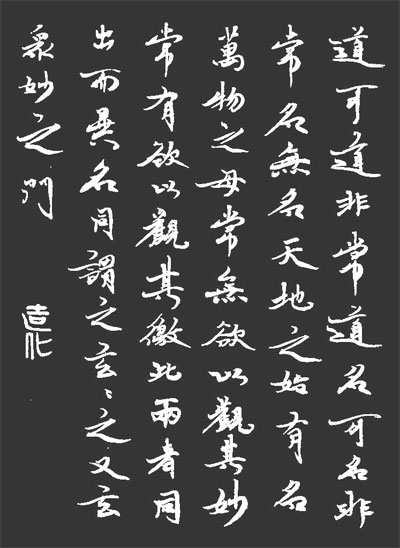 道可道非常道名可名非
常名無名天地之始有名
萬物之母常無欲以觀其妙
常有欲以觀其徼此兩者同
出而異名同謂之玄〻之又玄
眾妙之門
造化